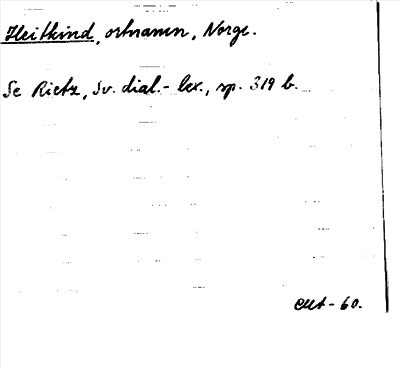 Heitkind, ortnamn, Norge.
Se Rietz, Sv. dial.-lex., sp. 319 b.
-60.